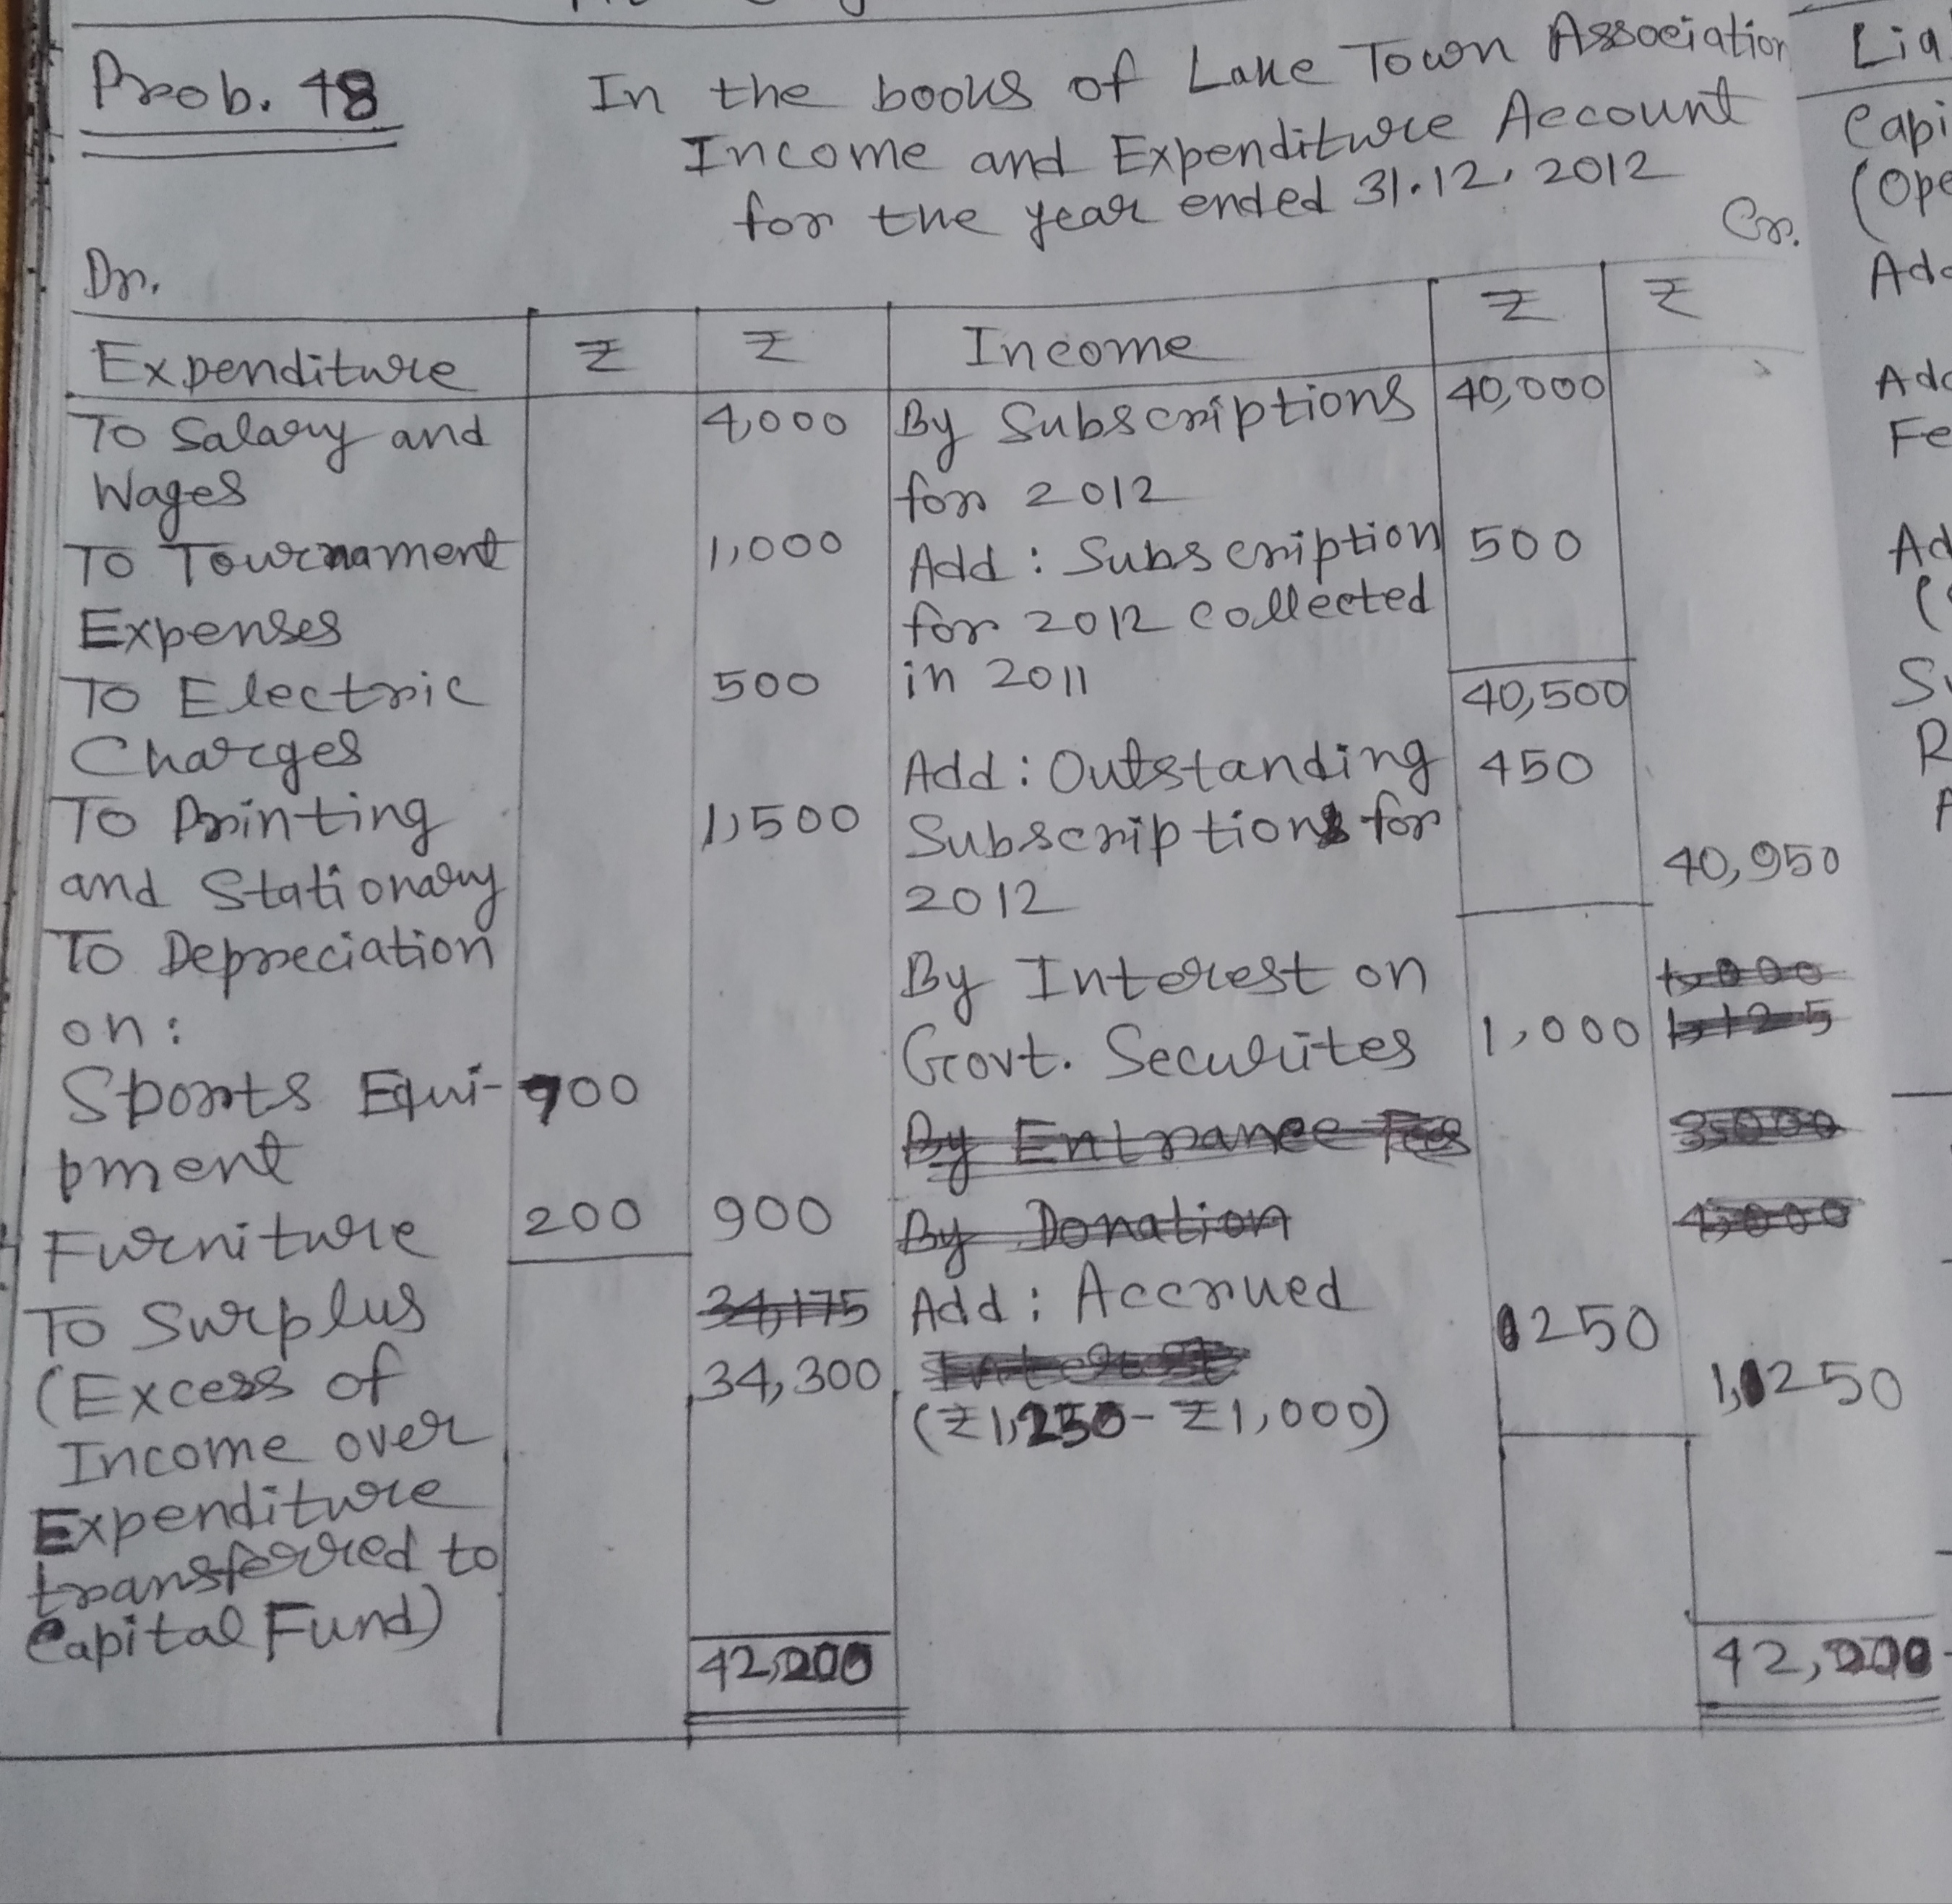 Prob. 48
In the books of Lake Town Association
Income and Expenditure Account
for the year ended 31.12.2012
Dr.
Cr.
Expenditure ₹ ₹ Income ₹ ₹
To Salary and 4,000 By Subscriptions 40,000
Wages for 2012
To Tournament 1,000 Add: Subscription 500
Expenses for 2012 collected
To Electric 500 in 2011 40,500
Charges Add: Outstanding 450
To Printing 1,500 Subscriptions for
and Stationary 2012 40,950
To Depreciation By Interest on 1,000
on: Govt. Securites 1,000 1,125
Sports Equi- 700 By Entrance Fees 3,000
pment
Furniture 200 900 By Donation 1,000
To Surplus 34,175 Add: Accrued 250
(Excess of 34,300 Interest 1,250
Income over (₹1,250-₹1,000)
Expenditure
transferred to
Capital Fund)
42,200 42,200
Lia
Capi
(Ope
Add
Add
Fe
Ad
S
R